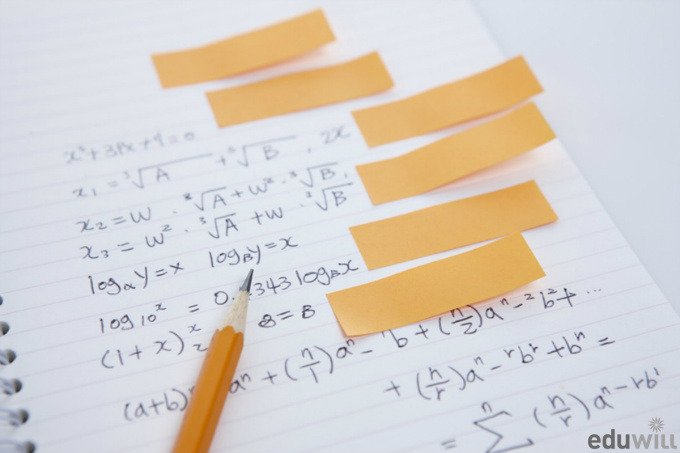 x₁ = ³√A + ³√B, 2x
x₂ = w · ³√A + w² · ³√B,
x₃ = w² · ³√A + w · ³√B
logₐ y = x log_B y = x
log 10ˣ = 0. 343 log_B x
(1+x)
(a+b) aⁿ + (n/1) aⁿ⁻ b + (n/2) aⁿ⁻² b² + ...
+ (n/r) aⁿ⁻ʳ bʳ + bⁿ =
= Σ (n/r) aⁿ⁻ʳ bʳ
eduwill